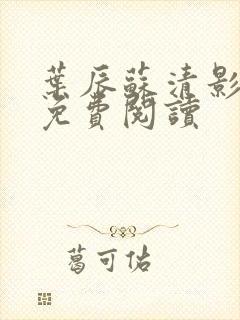 葉辰蘇清影
免費閱讀
葛可佑